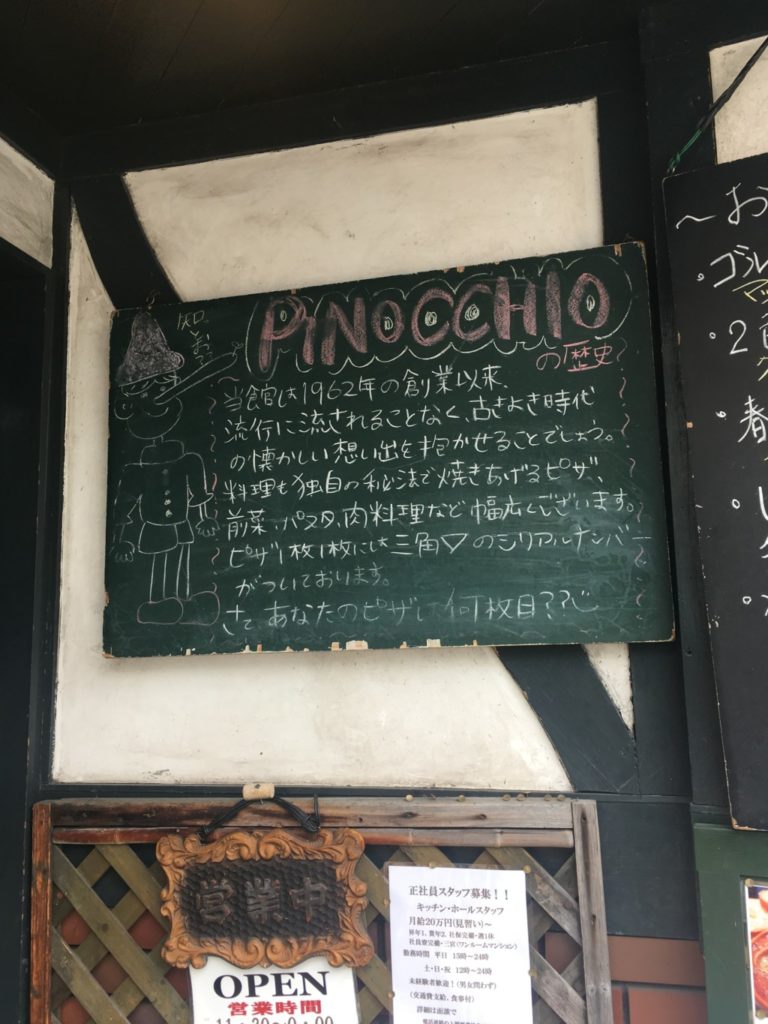 PiNOCCHIO
の歴史
当館は1962年の創業以来、
流行に流されることなく、古きよき時代
の懐かしい想い出を抱かせることでしょう。
料理も独自の秘法で焼きあげるピザ、
前菜、パスタ、肉料理など幅広くございます。
ピザ1枚1枚には三角▽のシリアルナンバー
がついております。
さて あなたのピザは何枚目??
～お
・ゴル
・2
・春
営業中
OPEN
営業時間
11:30～0:00
正社員スタッフ募集!!
キッチン・ホールスタッフ
月給20万円(見習い)～
昇年1、賞年2、社保完備・週1休
社員寮完備・三宮(ワンルームマンション)
勤務時間 平日 15時～24時
土・日・祝 12時～24時
未経験者歓迎!(男女問わず)
(交通費支給、食事付)
詳細は面談で